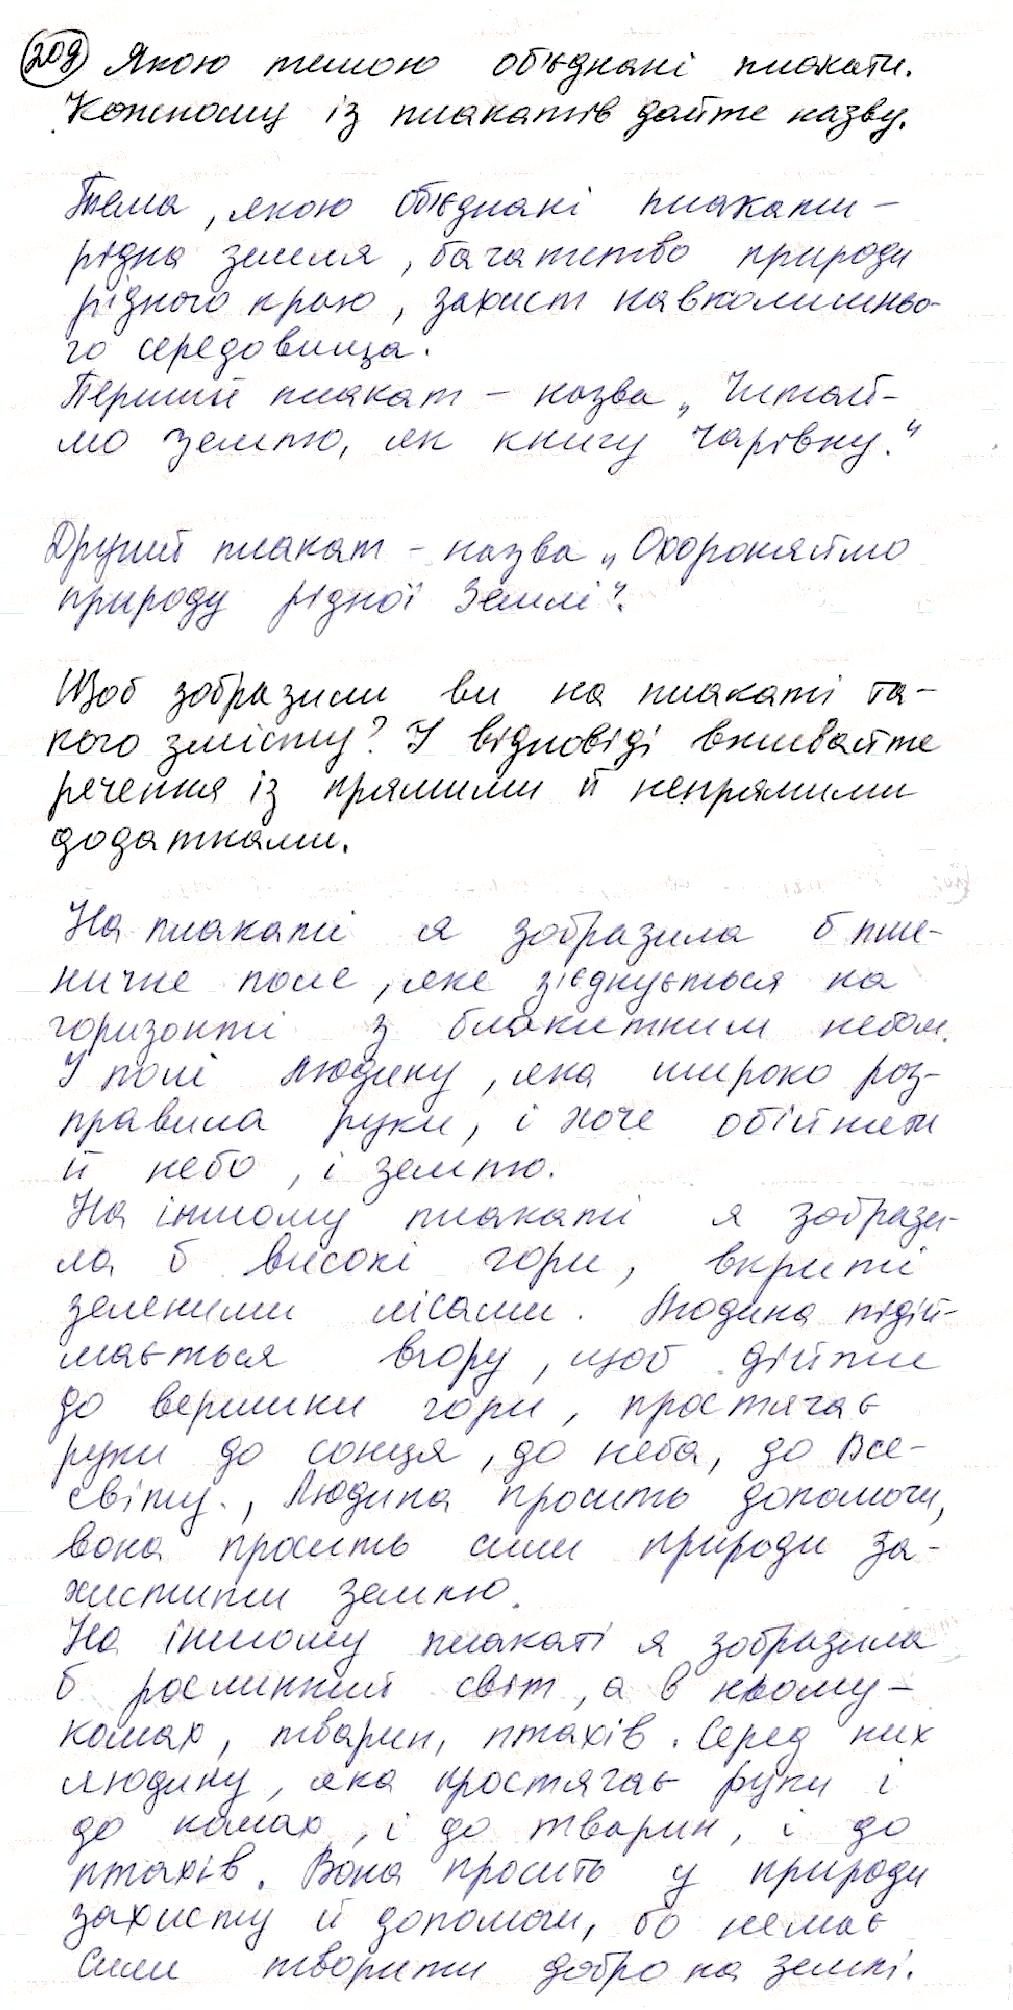 209 Якою темою об'єднані плакати.
Кожному із плакатів дайте назву.
Тема, якою об'єднані плакати –
рідна земля, багатство природи
рідного краю, захист навколишньо-
го середовища.
Перший плакат – назва „Читай-
мо землю, як книгу чарівну."
Другий плакат – назва „Охороняймо
природу рідної Землі".
Щоб зобразили ви на плакаті та-
кого змісту? У відповіді вживайте
речення із прямими й непрямими
додатками.
На плакаті я зобразила б пше-
ничне поле, яке з'єднується на
горизонті з блакитним небом.
У полі людину, яка широко роз-
правила руки, і хоче обійняти
й небо, і землю.
На іншому плакаті я зобрази-
ла б високі гори, вкриті
зеленими лісами. Людина підій-
мається вгору, щоб дійти
до вершини гори, простягає
руки до сонця, до неба, до Все-
світу., Людина просить допомоги,
вона просить сили природи за-
хистити землю.
На іншому плакаті я зобразила
б рослинний світ, а в ньому –
комах, тварин, птахів. Серед них
людину, яка простягає руки і
до комах, і до тварин, і до
птахів. Вона просить у природи
захисту й допомоги, бо немає
сили творити добро на землі.